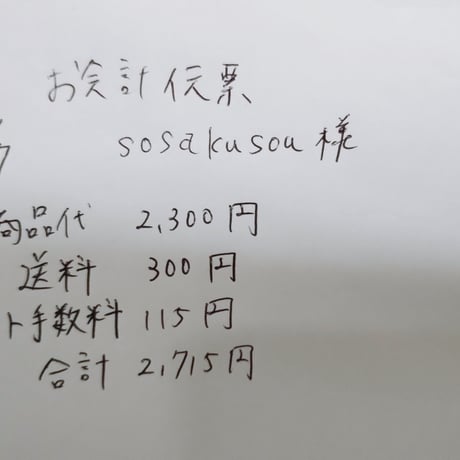 お会計伝票
sosakusou 様
商品代 2,300円
送料 300円
ト手数料 115円
合計 2,715円